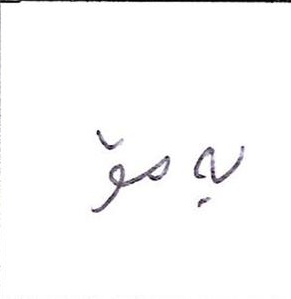 بەمۆ